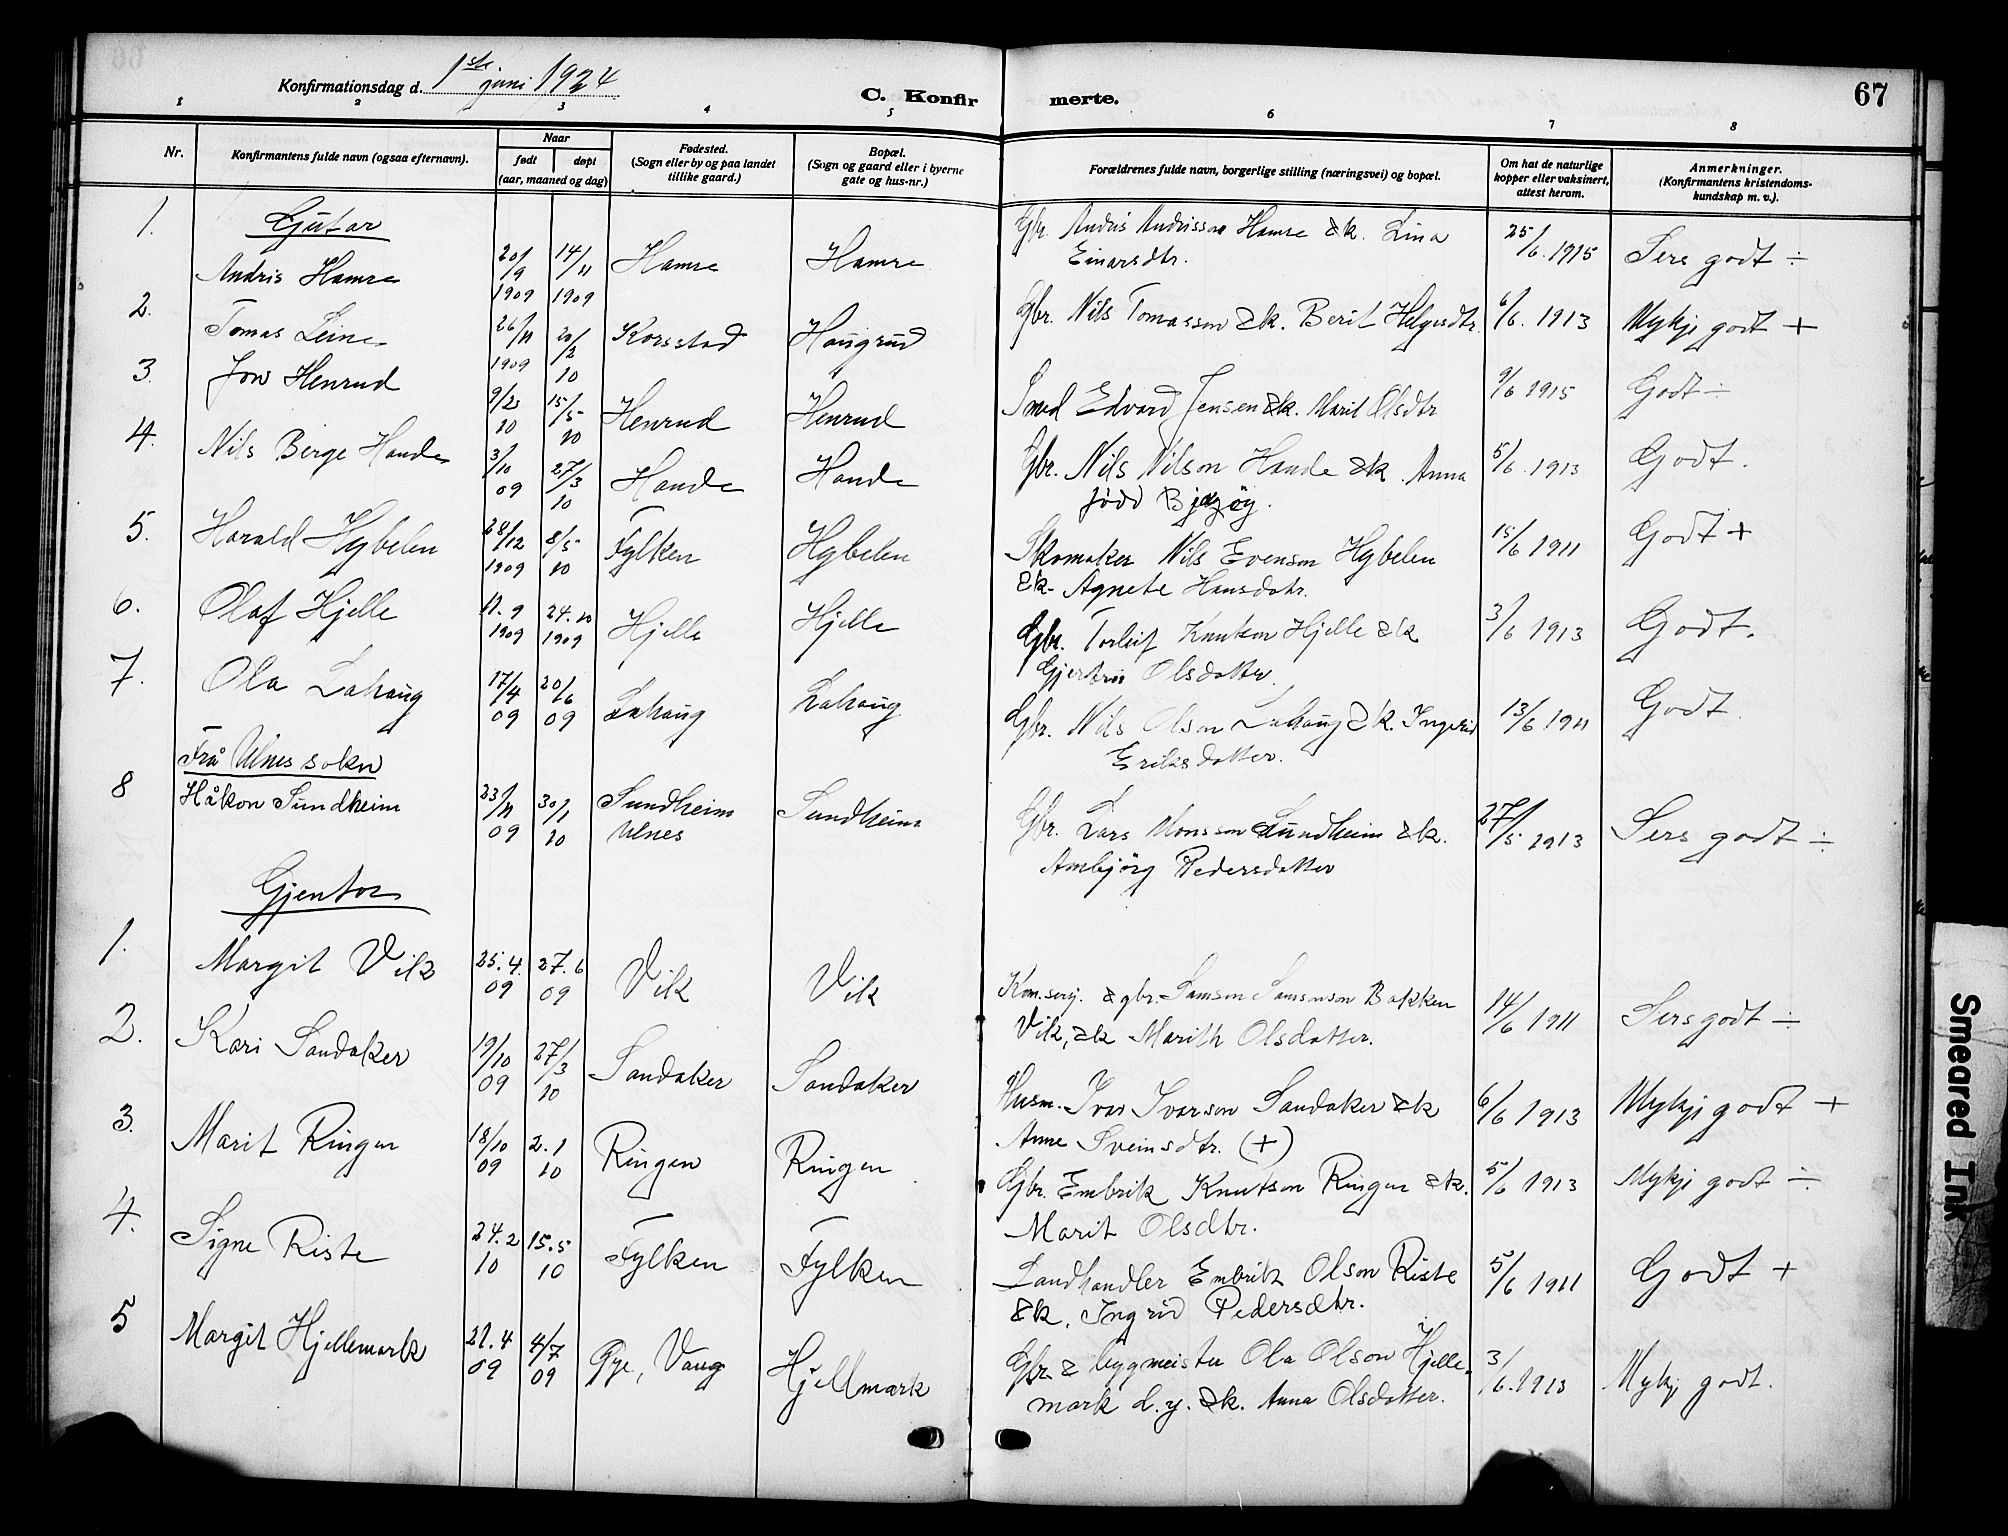 Konfirmationsdag d. 1ste juni 1924
C. Konfirmerte.
67
1 2 3 4 5 6 7 8
Nr.
Konfirmantens fulde navn (ogsaa efternavn).
Naar
født døpt
(aar, maaned og dag)
Fødested.
(Sogn eller by og paa landet
tillike gaard.)
Bopæl.
(Sogn og gaard eller i byerne
gate og hus-nr.)
Forældrenes fulde navn, borgerlige stilling (næringsvei) og bopæl.
Om hat de naturlige
kopper eller vaksinert,
attest herom.
Anmerkninger.
(Konfirmantens kristendoms-
kundskap m. v.).
Gutar
1. Andris Hamre 20/9 1909 14/11 1909 Hamre Hamre Gbr. Andris Andrisson Hamre & k. Lina
Einarsdtr. 25/6. 1915 Sers godt ÷
2. Tomas Leine 26/11 1909 20/2 10 Korsstad Haugrud Gbr. Nils Tomasson & k. Berit Helgesdtr. 6/6. 1913 Mykje godt +
3. Jon Henrud 9/2 10 15/5 10 Henrud Henrud Smed Edvard Jensen & k. Marit Olsdtr 9/6 1915 Godt ÷
4. Nils Berge Hande 3/10 09 27/3 10 Hande Hande Gbr. Nils Nilson Hande & k. Anna
fødd 5/6. 1913 Godt.
5. Harald Hybelen 28/12 1909 8/5 10 Fylken Hybelen Skomaker Nils Evenson Hybelen
& k. Agnete Hansdotr. 15/6 1911 Godt +
6. Olaf Hjelle 11. 9 1909 24. 10 1909 Hjelle Hjelle Gbr. Torleif Knutson Hjelle & k
Gjertrud Olsdotter. 3/6 1913 Godt.
7. Ola Lahaug 17/4 09 20/6 09 Lahaug Lahaug Gbr. Nils Olson Lahaug & k. Ingerid
Eriksdotter. 13/6 1911 Godt
Frå Ulnes sokn
8 Håkon Sundheim 23/11 09 30/1 10 Sundheim
Ulnes Sundheim Gbr. Lars Monsson Sundheim & k.
Ambjørg Pedersdotter 27/5 1913 Sers godt ÷
Gjentor
1. Margit Vik 25. 4. 09 27. 6 09 Vik Vik Kom.serg. & gbr. Samson Samsonson Bakken
Vik, & k Marith Olsdotter. 14/6 1911 Sers godt ÷
2. Kari Sandaker 19/10 09 27/3 10 Sandaker Sandaker Husm. Ivar Ivarson Sandaker & k
Anne Sveinsdtr. (+) 6/6 1913 Mykje godt +
3. Marit Ringen 18/10 09 2. 1 10 Ringen Ringen Gbr. Embrik Knutson Ringen & k.
Marit Olsdtr. 5/6 1913 Mykje godt ÷
4. Signe Riste 24. 2 10 15. 5 10 Fylken Fylken Landhandler Embrik Olson Riste
& k. Ingrid Pedersdtr. 5/6 1911 Godt +
5 Margit Hjellemark 21. 4 09 4/7 09 Øye, Vang Hjellmark Gbr. & byggmeister Ola Olson Hjelle-
mark d. y. & k. Anna Olsdotter. 3/6. 1913 Mykje godt.
Smeared Ink